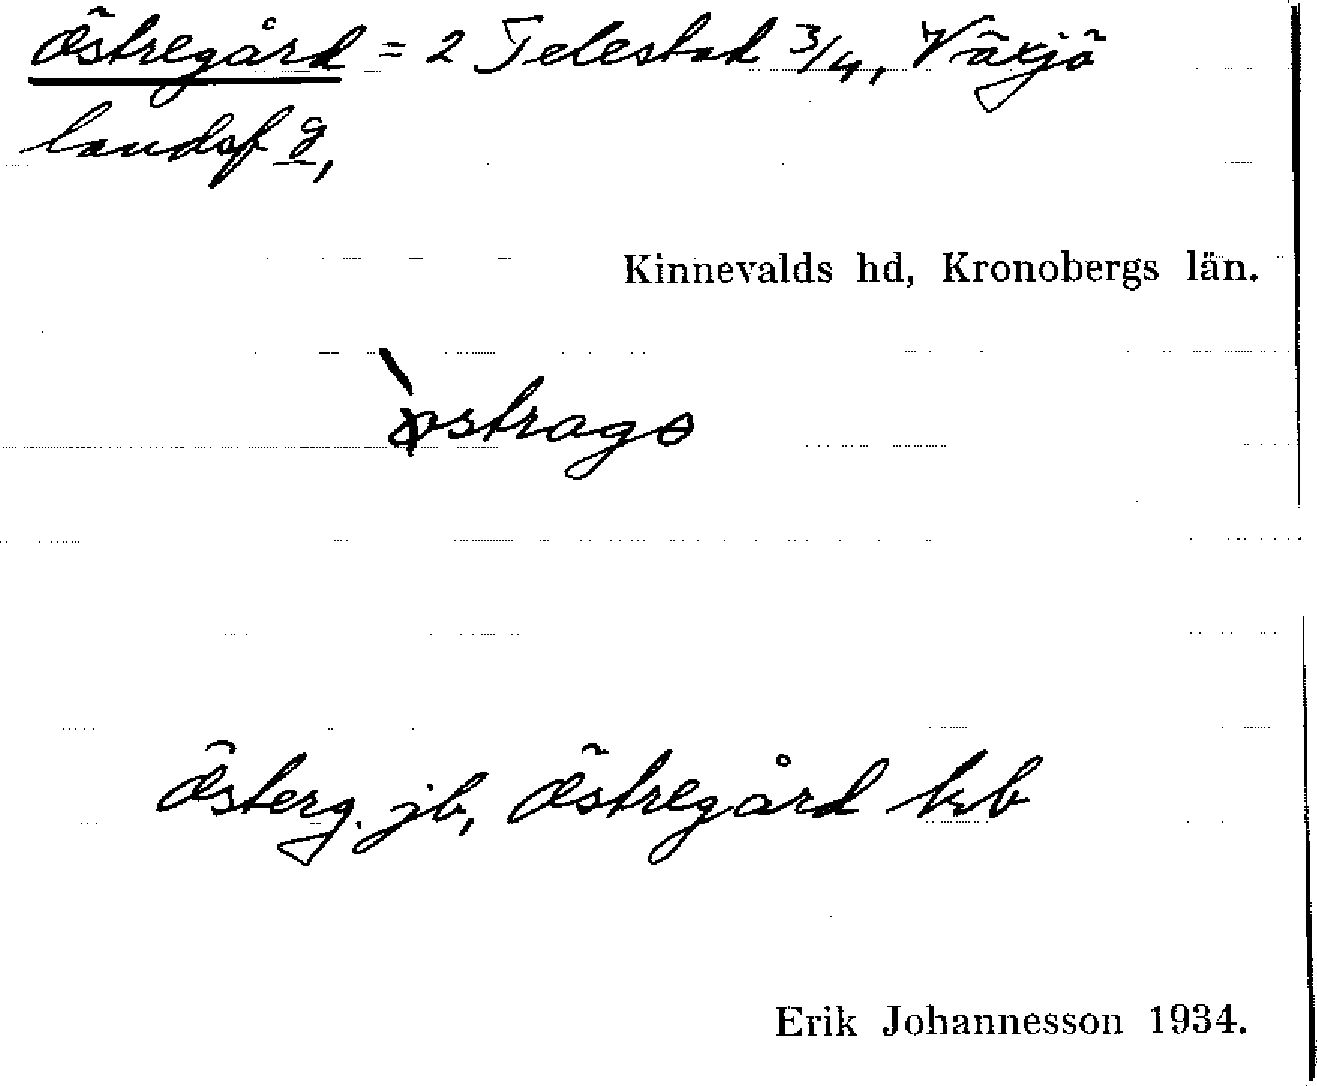 Östregård = 2 Telestad 3/4, Växjö
landsf g,
Kinnevalds hd, Kronobergs län.
Österg. jb, Östregård kb
Erik Johannesson 1934.